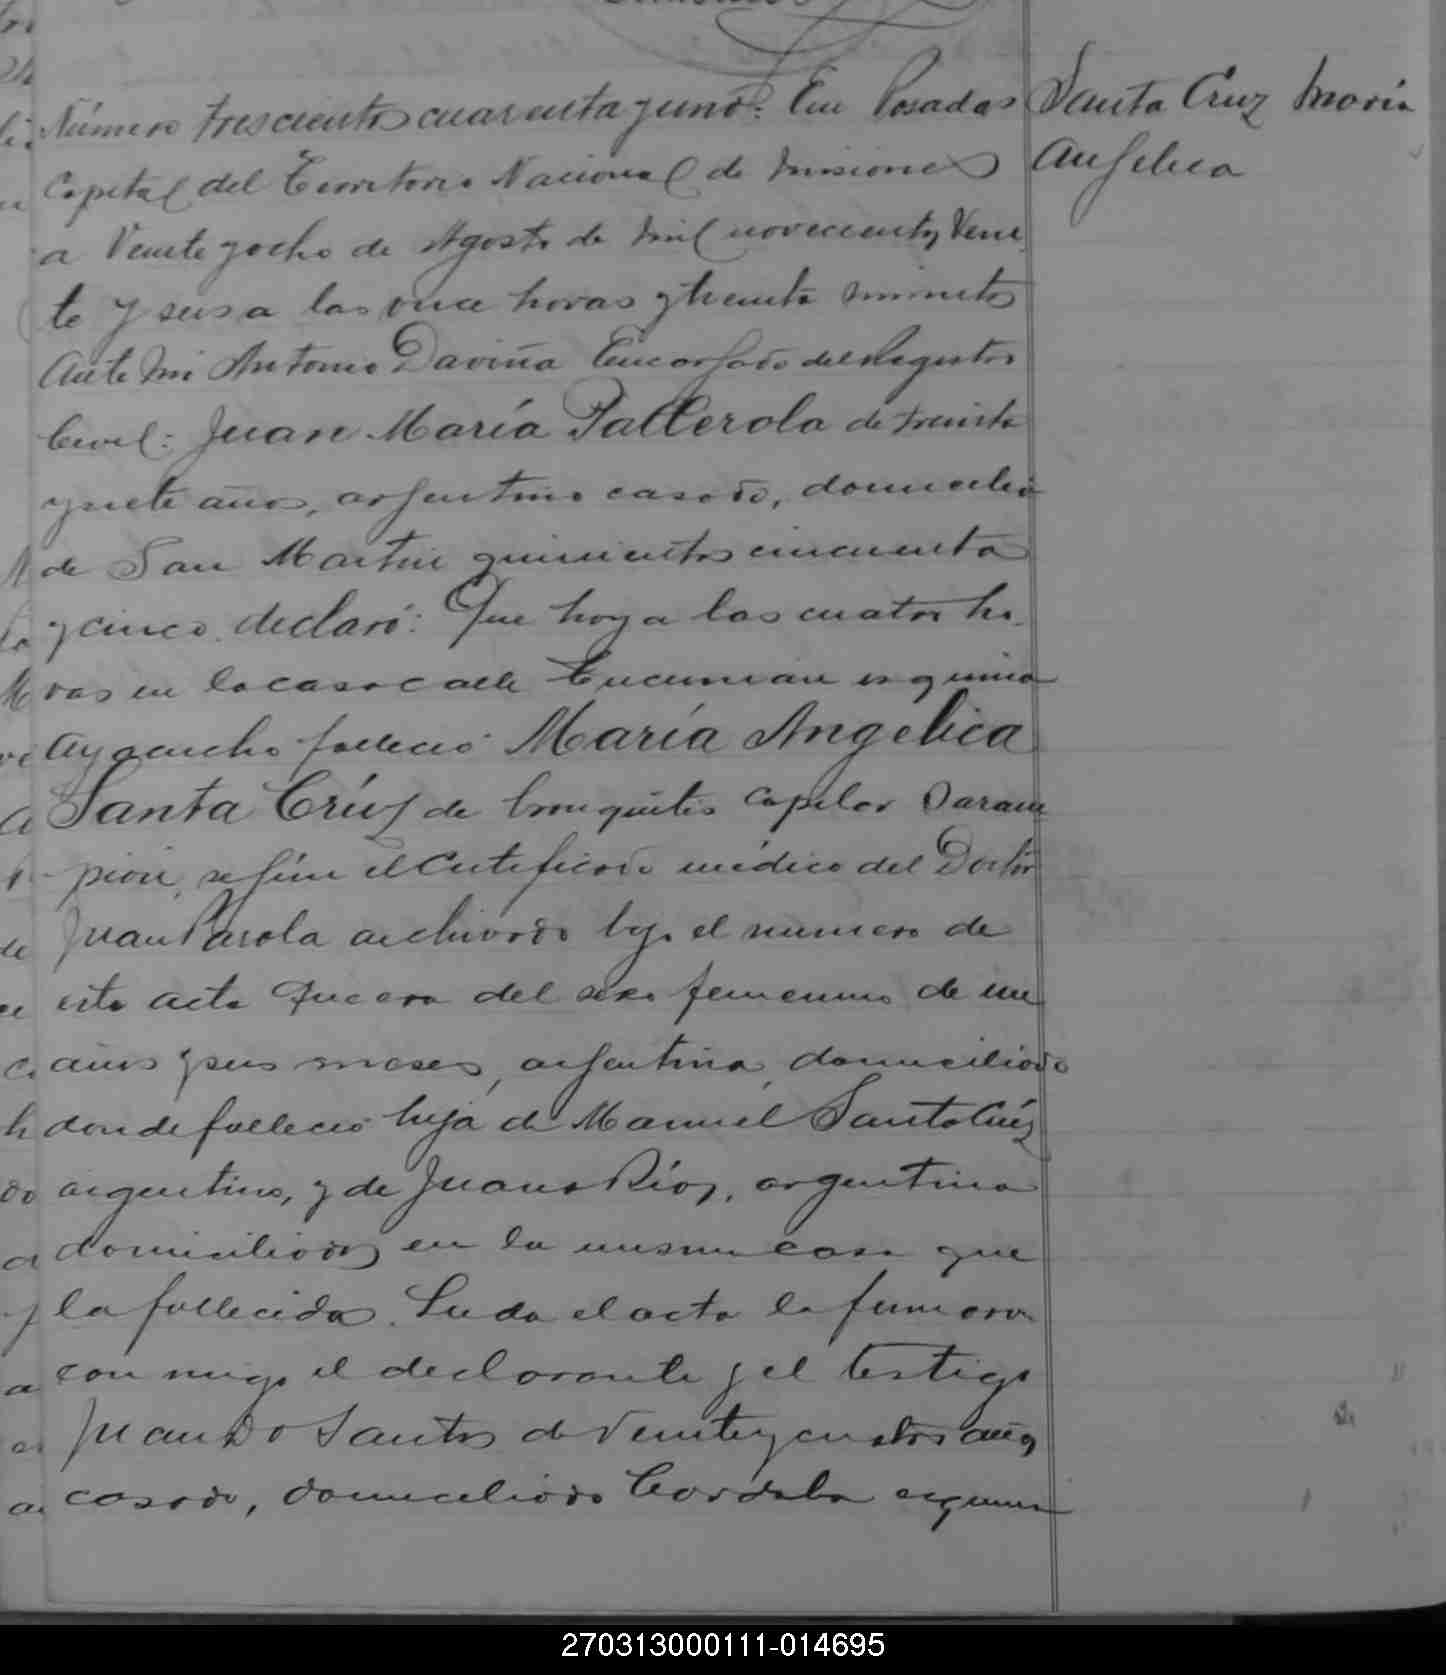 Número trescientos cuarenta y uno: En Posadas
Capital del Territorio Nacional de Misiones
a Veinte y ocho de Agosto de mil novecientos Vein
te y seis a las once horas y treinta minutos
Ante mi Antonio Daviña Encargado del Registro
Civil: Juan María Pallerola de treinta
y siete años, argentino casado, domicilio
de San Martin quinientos cincuenta
y cinco declaró: Que hoy a las cuatro ho
ras en la casa calle Tucuman esquina
Ayacucho falleció María Angélica
Santa Crúz de bronquitis capilar Saram
pión, según el Certificado médico del Doctor
Juan Parola archivado bajo el número de
esta acta Que era del sexo femenino de un
años y seis meses, argentina, domiciliada
donde falleció hija de Manuel Santa Crúz
argentino, y de Juana Ríos, argentina
domiciliados en la misma casa que
la fallecida. Leida el acta la firmaron
con migo el declarante y el testigo
Juan Do Santos de Veinte y cuatro años
casado, domiciliado Cordoba esquina
Santa Cruz María
Angelica
270313000111-014695